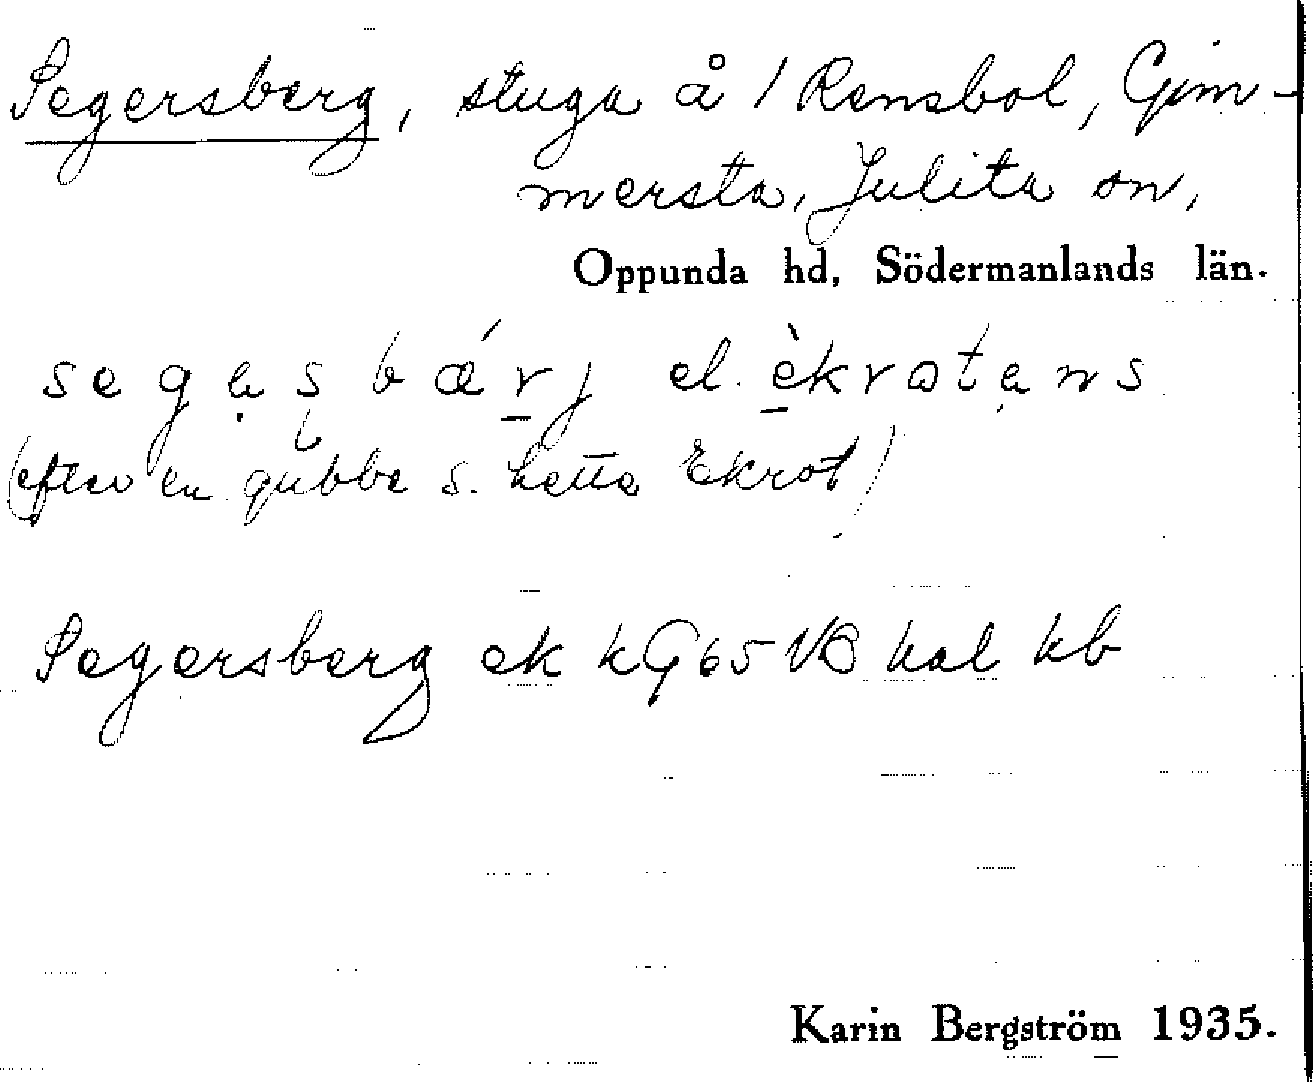 Segersberg, stuga å 1 Rensbol, Gim-
mersta, Julita sn,
Oppunda hd, Södermanlands län.
segasbærj el. èkrotans
(efter en gubbe s. hette Ekrot)
Segersberg ek kG65VB hal kb
Karin Bergström 1935.